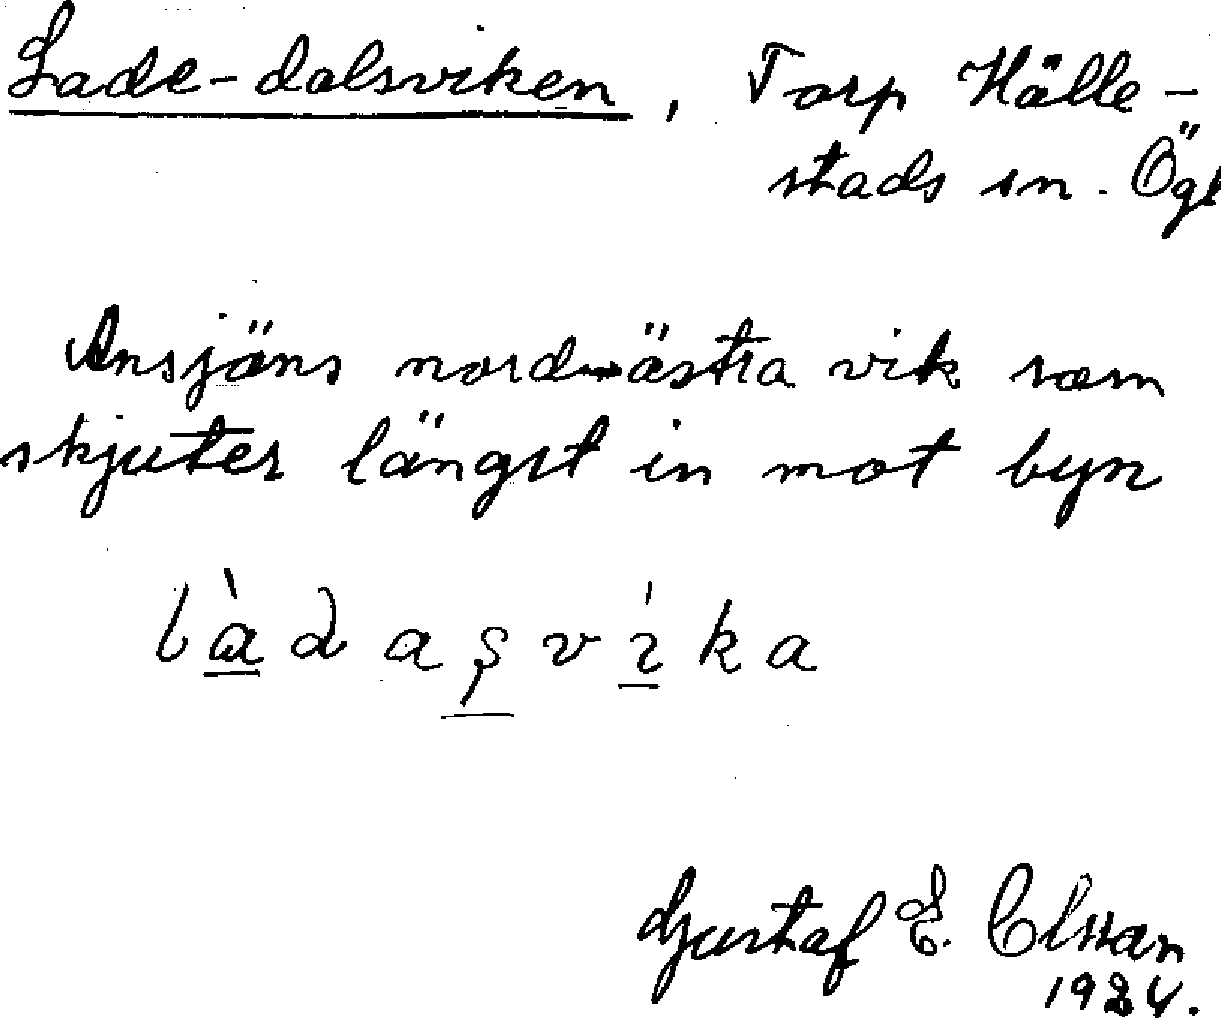 Lade-dalsviken, Torp Hälle-
stads sn. Ögl
Ansjöns nordvästra vik som
skjuter längst in mot byn
làdaṣvı̍ka
Gustaf E. Olsson
1924.